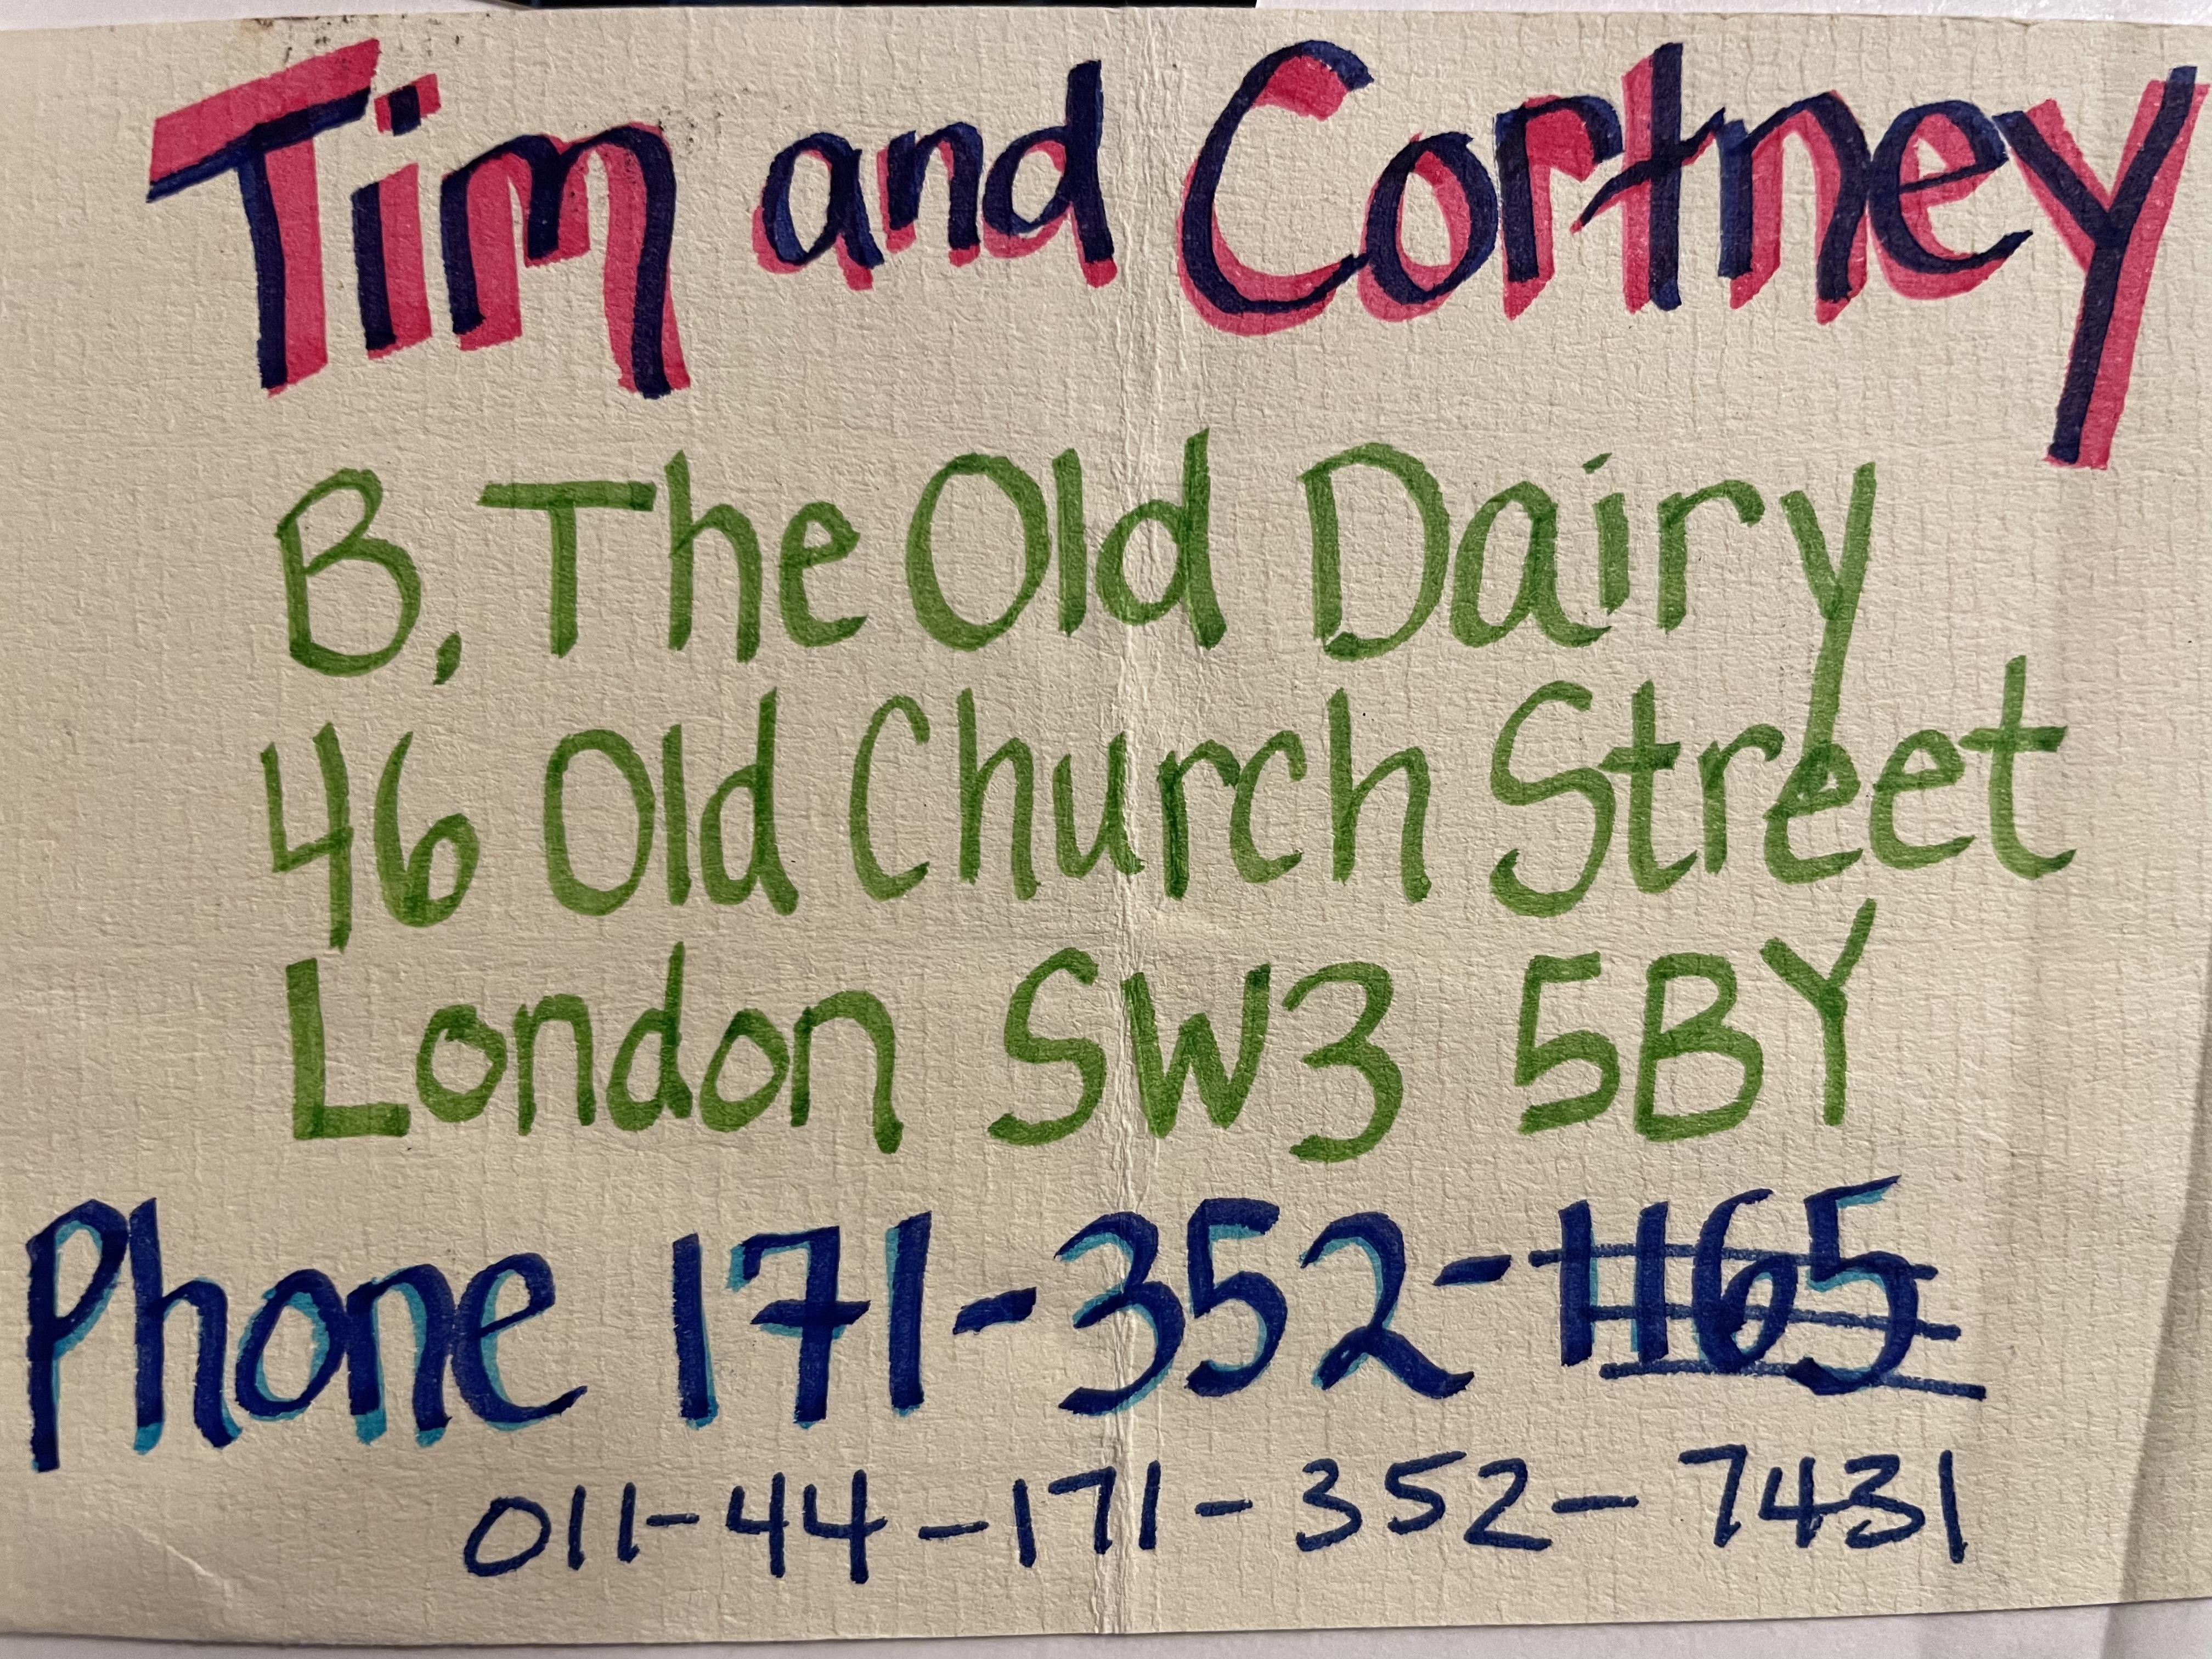 Tim and Cortney
B, The Old Dairy
46 Old Church Street
London SW3 5BY
Phone 171-352-1165
011-44-171-352-7431